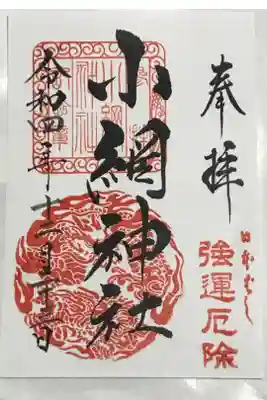 奉拝
日本ばし
強運厄除
小網神社
令和四年十二月十三日